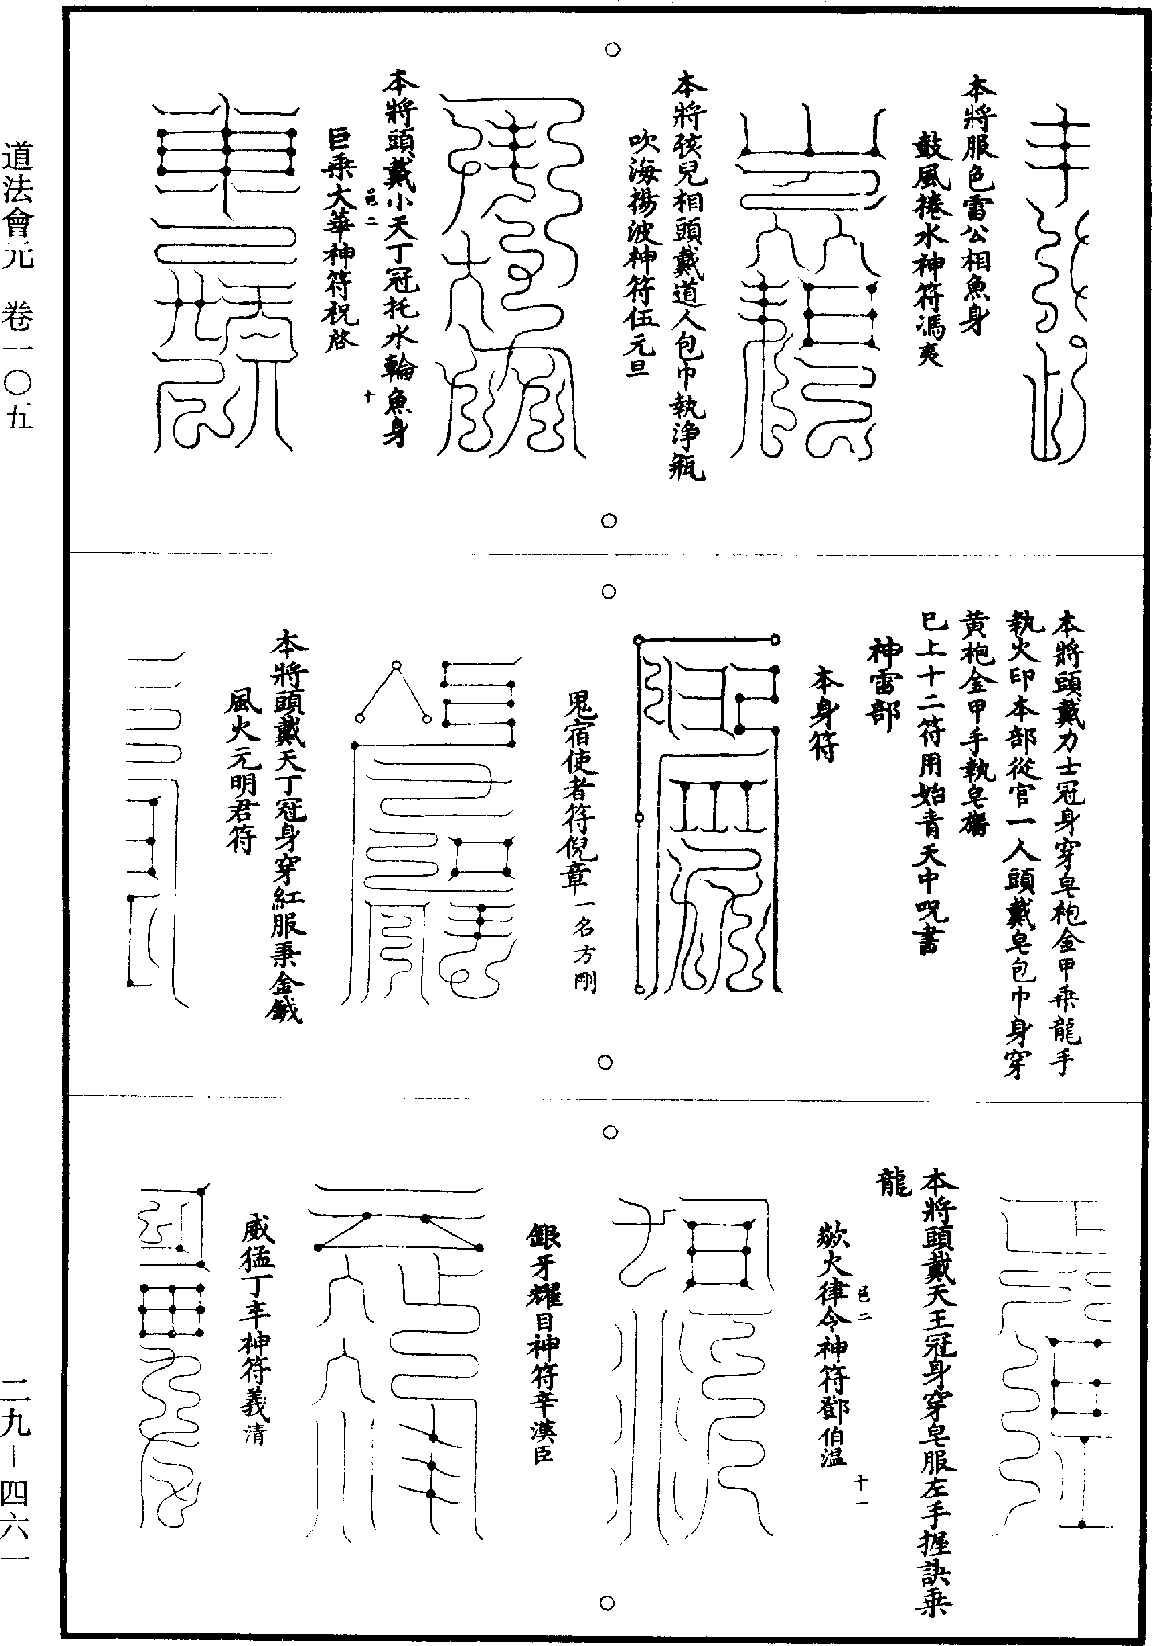 本將服色雷公相魚身
鼓風捲水神符馮夷
本將孩兒相頭戴道人包巾執淨瓶
吹海揚波神符伍元旦
本將頭戴小天丁冠托水輪魚身
邑二
十
巨乘大華神符祝啓
本將頭戴力士冠身穿皂袍金甲乘龍手
執火印本部從官一人頭戴皂包巾身穿
黃袍金甲手執皂旛
巳上十二符用始青天中呪書
神雷部
本身符
鬼宿使者符倪章一名方剛
本將頭戴天丁冠身穿紅服秉金鉞
風火元明君符
本將頭戴天王冠身穿皂服左手握訣乘
龍
歘火律令神符鄧伯溫
邑二
十一
銀牙耀目神符辛漢臣
威猛丁辛神符義清
道法會元　卷一〇五
二九－四六一